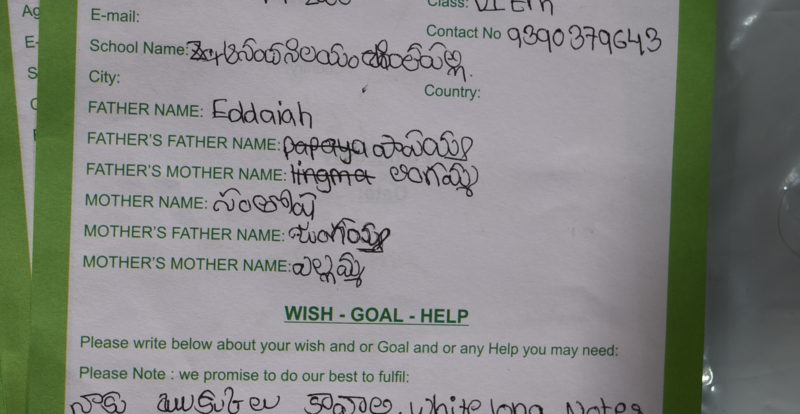 E-mail:
Class: VIEm
Contact No 9390379643
School Name: ఆనంద నిలయం
City:
Country:
FATHER NAME: Eddaiah
FATHER'S FATHER NAME: papaya పాపయ్య
FATHER'S MOTHER NAME: lingma లింగమ్మ
MOTHER NAME: సంతోష
MOTHER'S FATHER NAME:
MOTHER'S MOTHER NAME: ఎల్లమ్మ
WISH - GOAL - HELP
Please write below about your wish and or Goal and or any Help you may need:
Please Note : we promise to do our best to fulfil:
నాకు కావాలి. White long Notes